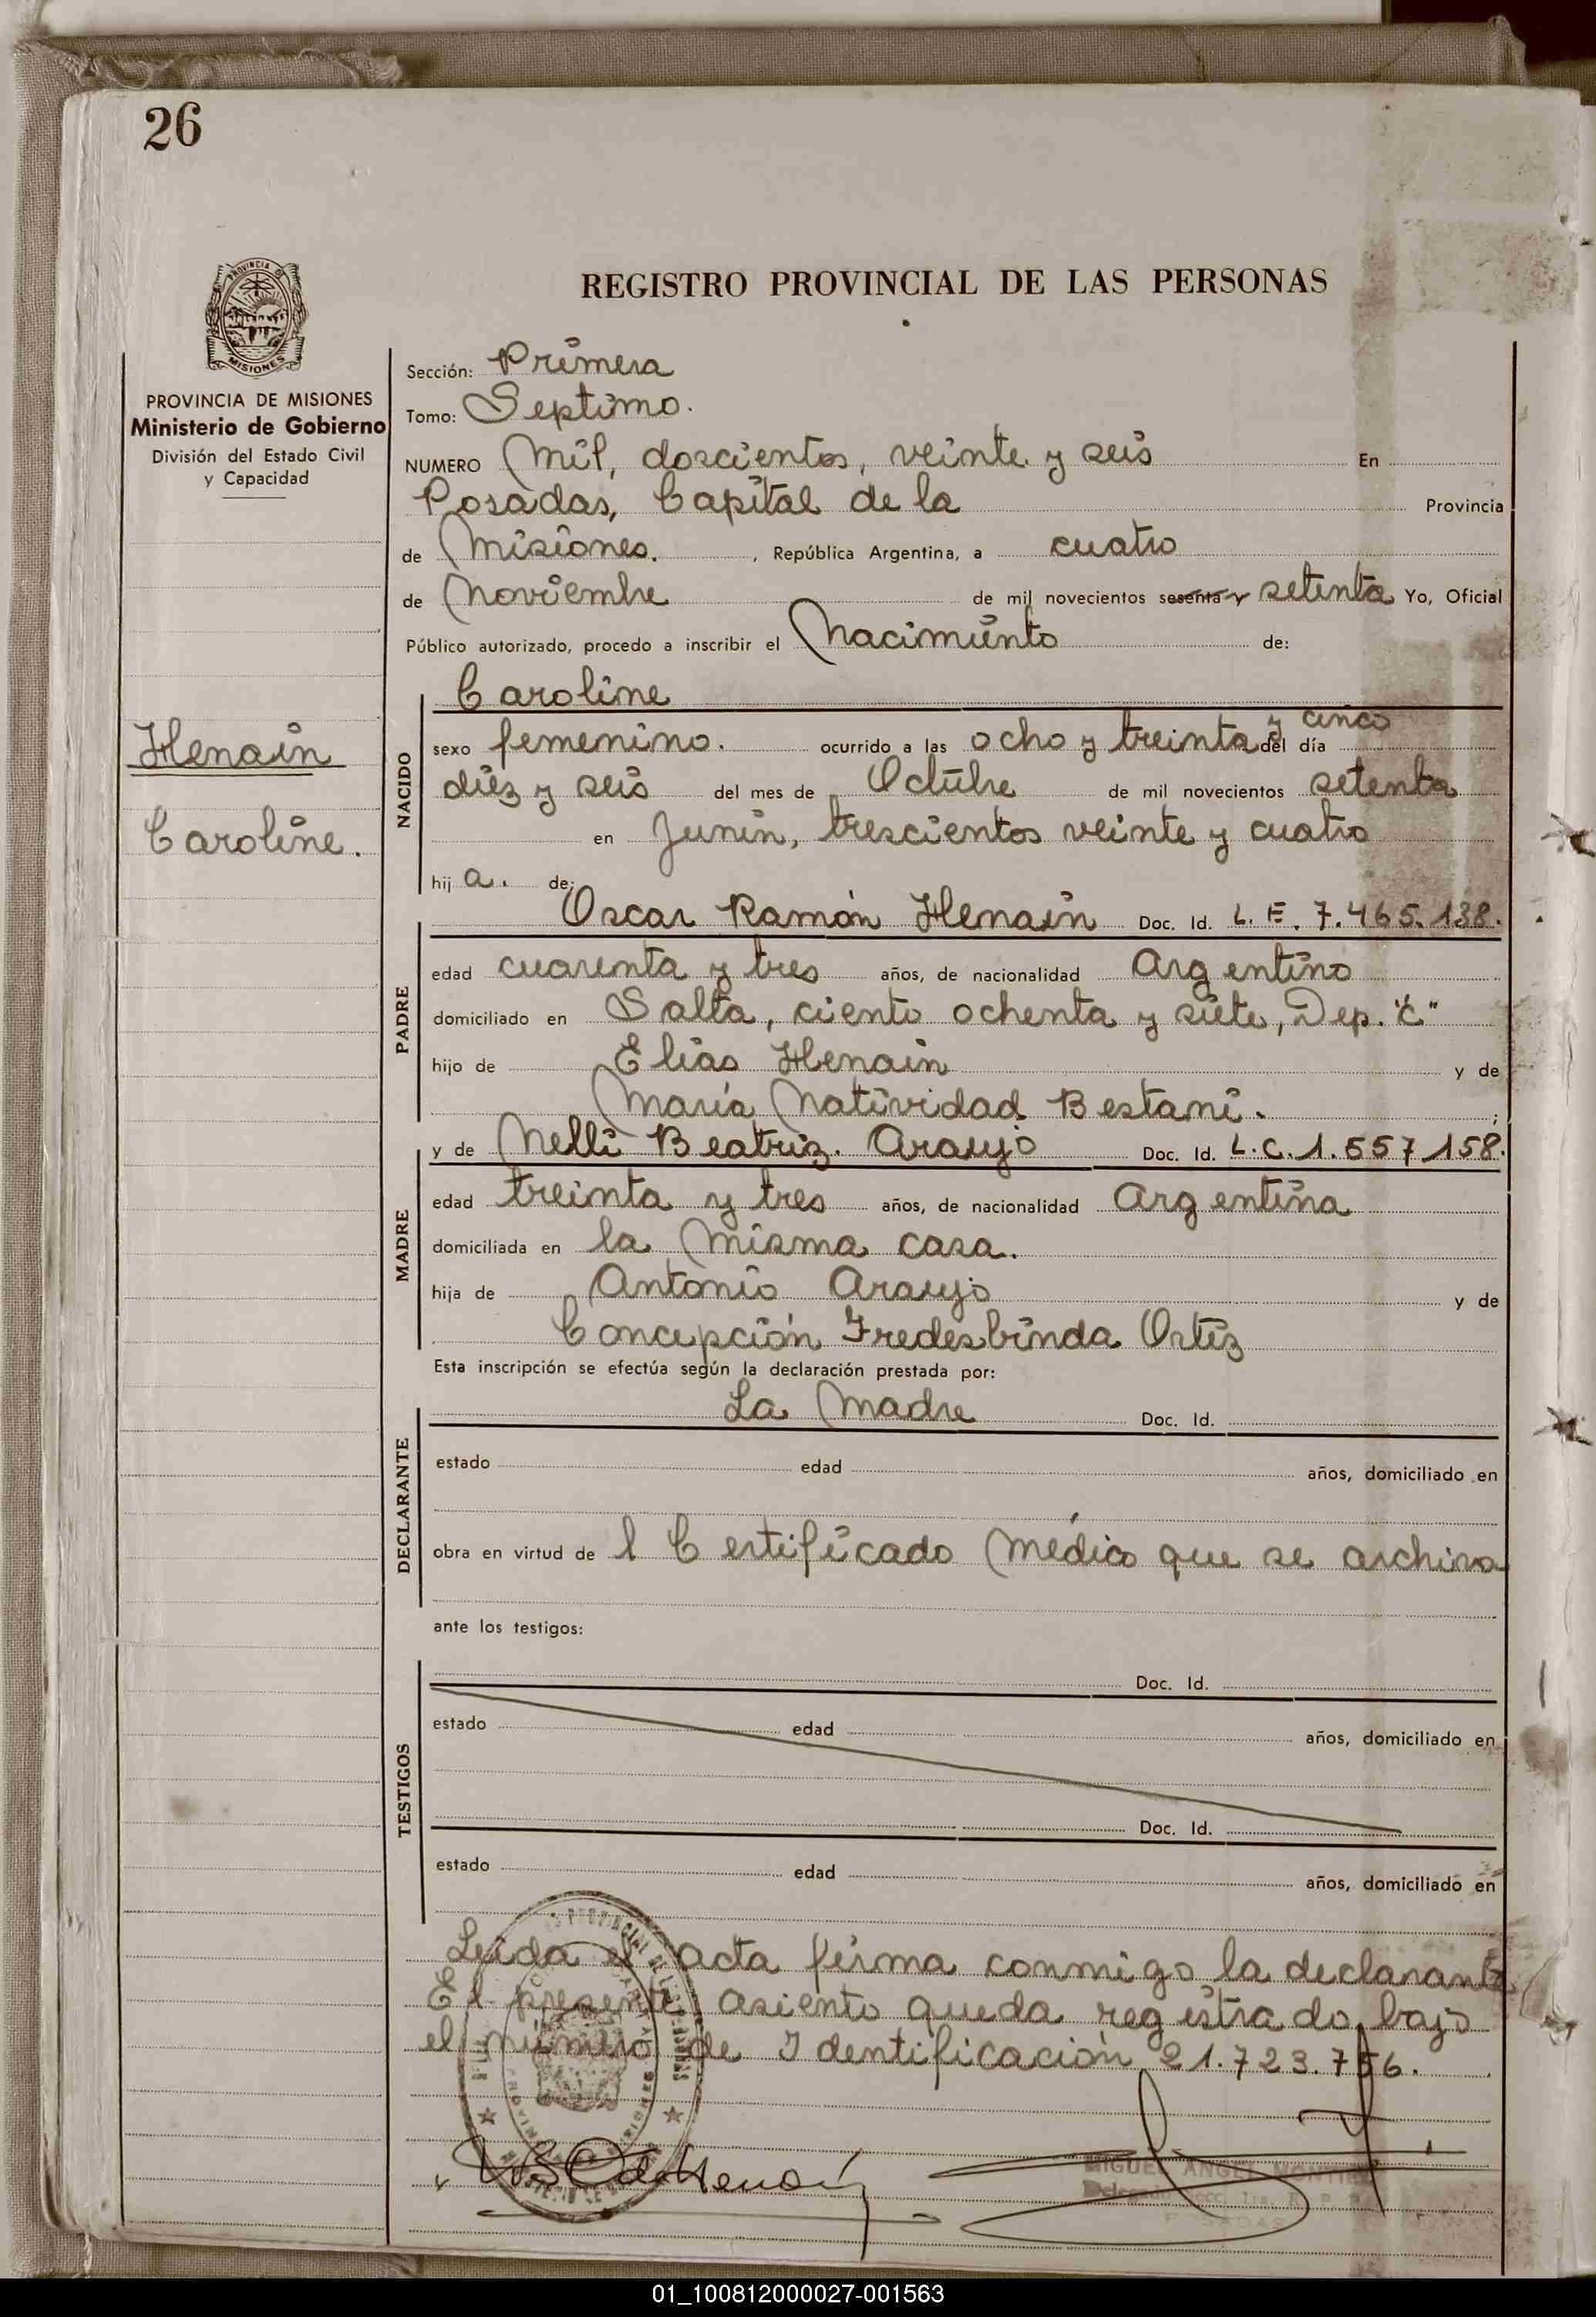 26
REGISTRO PROVINCIAL DE LAS PERSONAS
PROVINCIA DE
MISIONES
PROVINCIA DE MISIONES
Ministerio de Gobierno
División del Estado Civil
y Capacidad
Henain
Caroline.
Sección: Primera
Tomo: Septimo.
NUMERO Mil, doscientos, veinte y seis En
Posadas, Capital de la Provincia
de Misiones. , República Argentina, a cuatro
de Noviembre de mil novecientos sesenta y setenta Yo, Oficial
Público autorizado, procedo a inscribir el Nacimiento de:
Caroline
NACIDO
sexo femenino. ocurrido a las ocho y treinta y cinco del día
diez y seis del mes de Octubre de mil novecientos setenta
en Junín, trescientos veinte y cuatro
hij a. de:
Oscar Ramón Henain Doc. Id. L. E. 7.465.138.
PADRE
edad cuarenta y tres años, de nacionalidad Argentino
domiciliado en Salta, ciento ochenta y siete, Dep. "C"
hijo de Elias Henain y de
María Natividad Bestani. ;
y de Nelli Beatriz. Araujo Doc. Id. L.C. 1.557.158.
MADRE
edad treinta y tres años, de nacionalidad Argentina
domiciliada en la misma casa.
hija de Antonio Araujo y de
Concepción Fredesbinda Ortiz
Esta inscripción se efectúa según la declaración prestada por:
La Madre Doc. Id.
DECLARANTE
estado edad años, domiciliado en
obra en virtud de l Certificado Médico que se archiva
ante los testigos:
Doc. Id.
TESTIGOS
estado edad años, domiciliado en
Doc. Id.
estado edad años, domiciliado en
Leida el acta firma conmigo la declarante
El presente asiento queda registrado bajo
el número de Identificación 21.723.756.
MIGUEL ANGEL
01_100812000027-001563